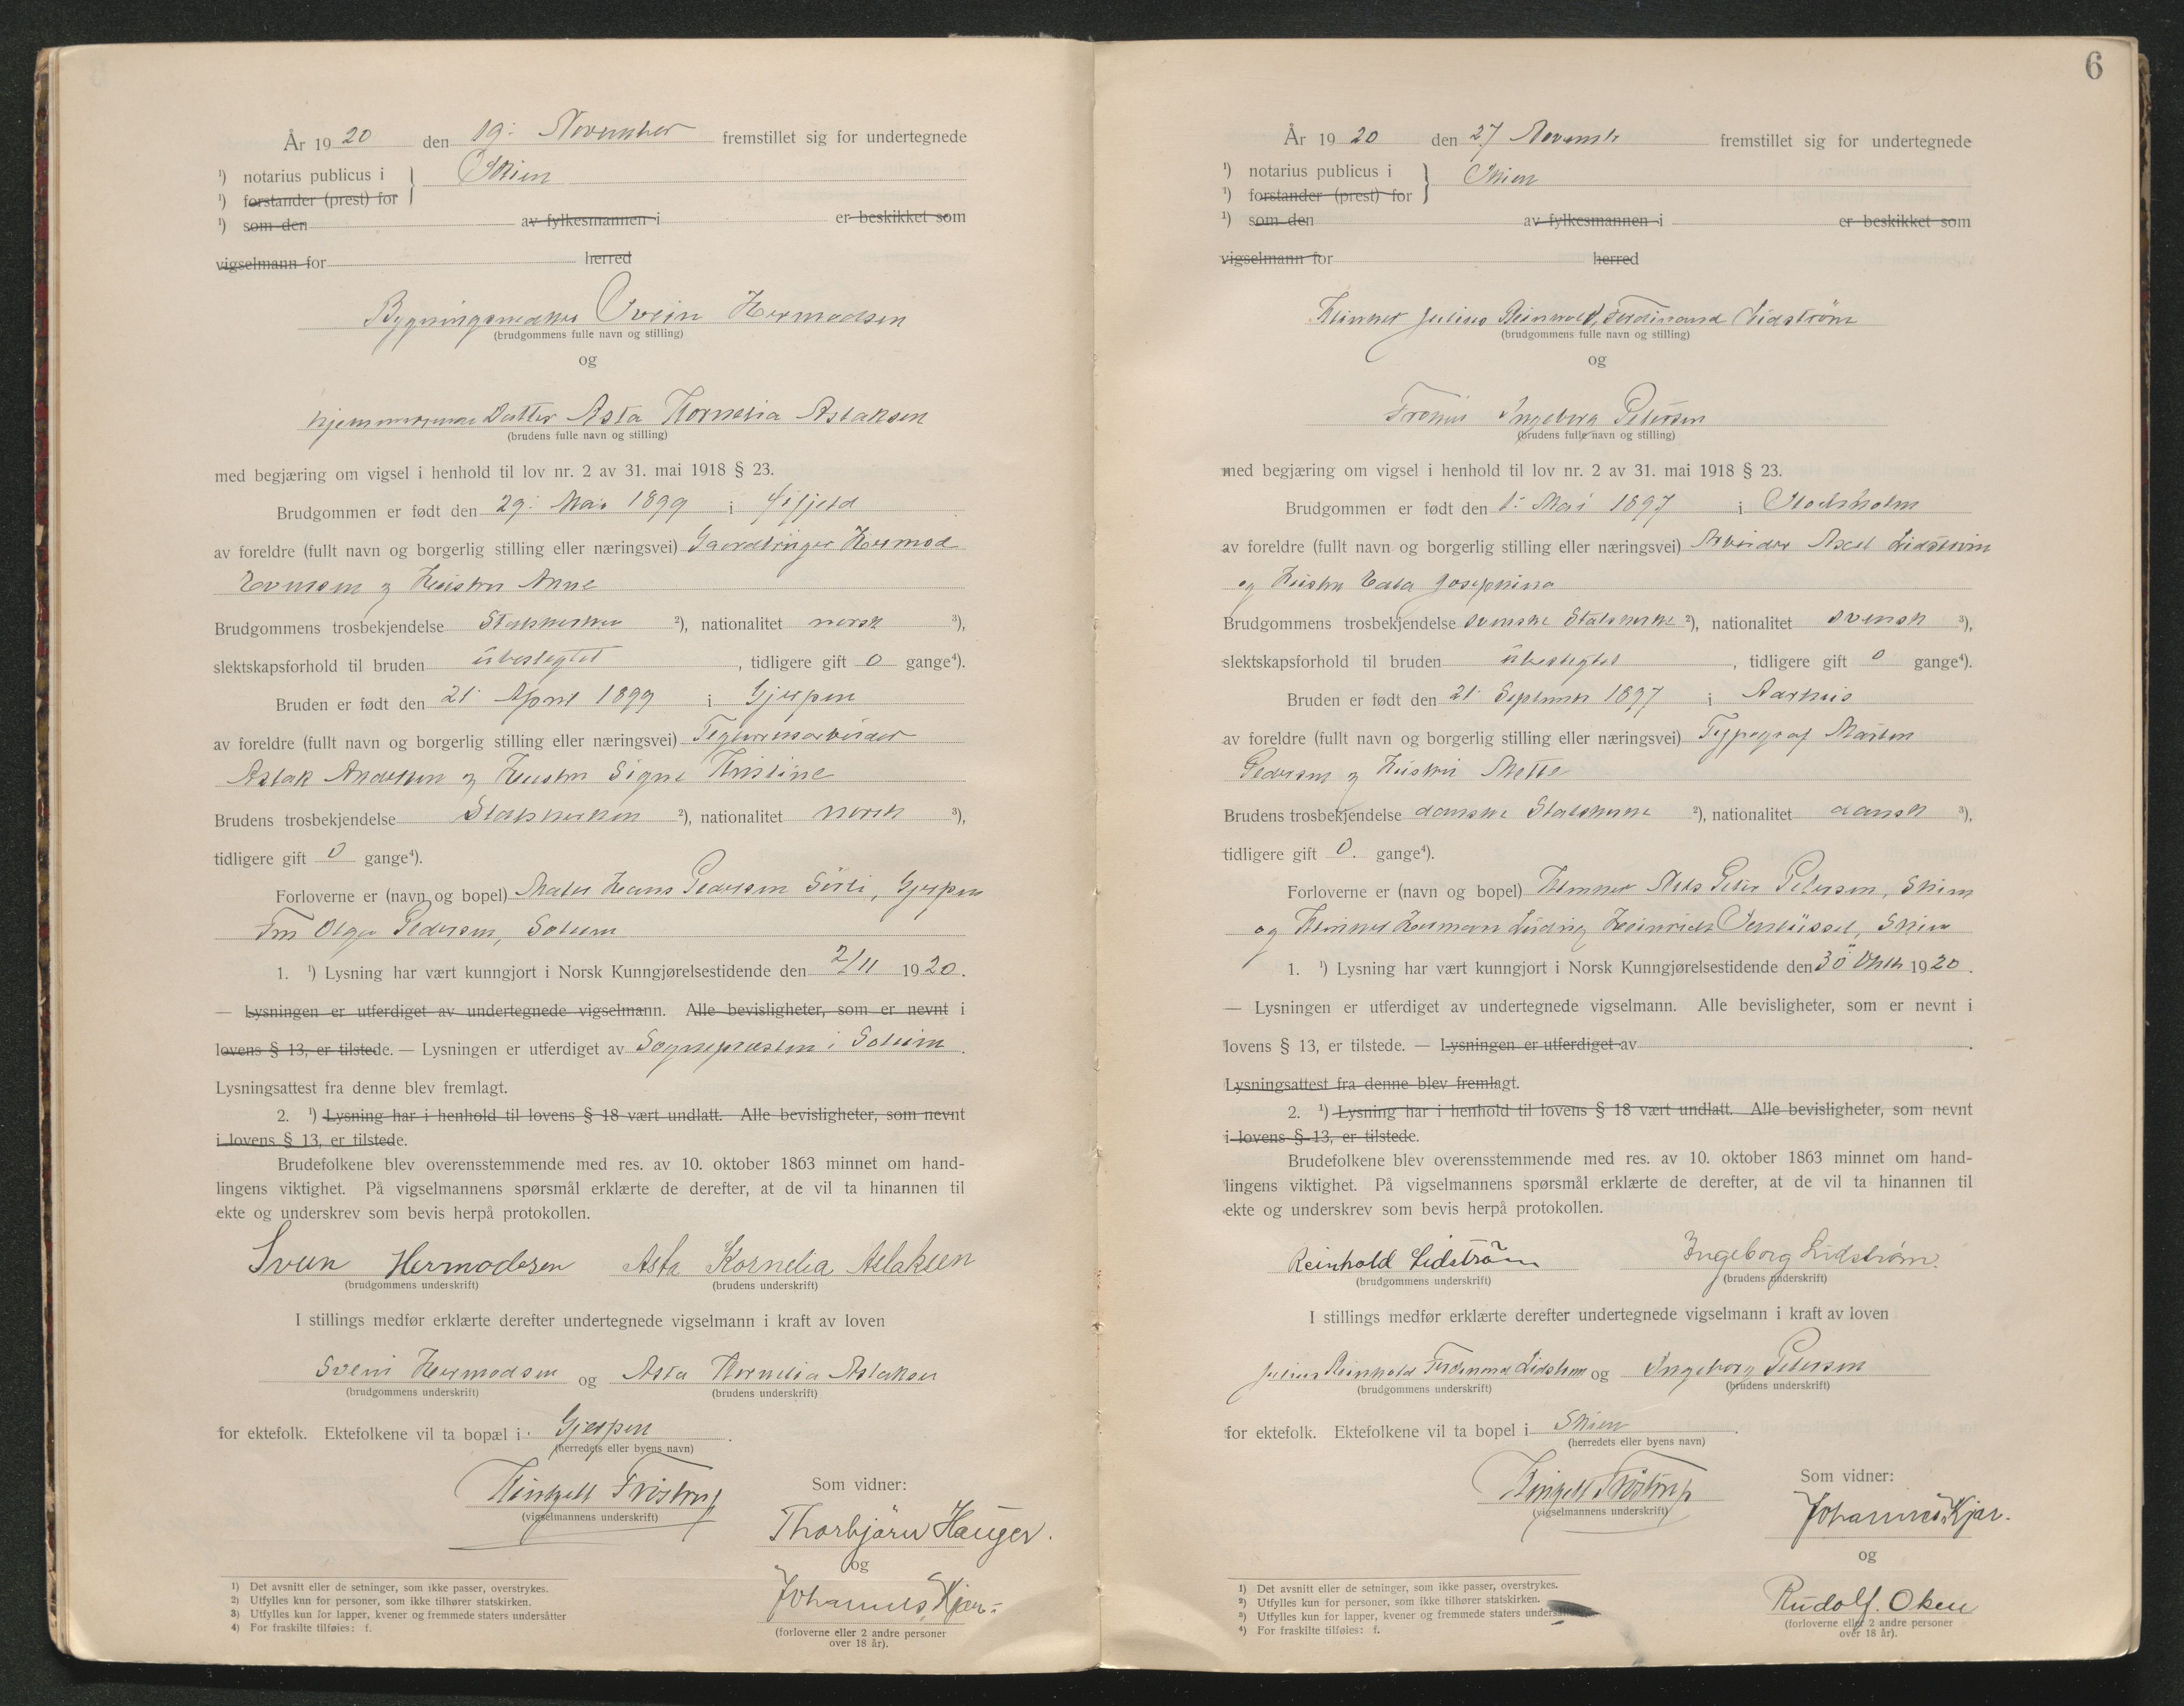 År 1920 den 19: November fremstillet sig for undertegnede
¹) notarius publicus i Skien
¹) forstander (prest) for
¹) som den av fylkesmannen i er beskikket som
vigselmann for herred
Svein Hermodsen
(brudgommens fulle navn og stilling)
og
hjemmeværende Datter Asta Kornelia Aslaksen
(brudens fulle navn og stilling)
med begjæring om vigsel i henhold til lov nr. 2 av 31. mai 1918 § 23.
Brudgommen er født den 29: Mai 1899 i
av foreldre (fullt navn og borgerlig stilling eller næringsvei) Gaardbruger Hermod
og Hustru Anne
Brudgommens trosbekjendelse Statskirken ²), nationalitet norsk ³),
slektskapsforhold til bruden ubeslegtet, tidligere gift 0 gange⁴).
Bruden er født den 21 April 1899 i Gjerpen
av foreldre (fullt navn og borgerlig stilling eller næringsvei)
Aslak Andersen og Hustru Signe Kristine
Brudens trosbekjendelse Statskirken ²), nationalitet norsk ³),
tidligere gift 0 gange⁴).
Forloverne er (navn og bopel) Maler Hans Pedersen Sörli, Gjerpen
Fru Olga Pedersen, Solum
1. ¹) Lysning har vært kunngjort i Norsk Kunngjørelsestidende den 2/11 1920.
— Lysningen er utferdiget av undertegnede vigselmann. Alle bevisligheter, som er nevnt i
lovens § 13, er tilstede. — Lysningen er utferdiget av Sognepresten i Solum.
Lysningsattest fra denne blev fremlagt.
2. ¹) Lysning har i henhold til lovens § 18 vært undlatt. Alle bevisligheter, som nevnt
i lovens § 13, er tilstede.
Brudefolkene blev overensstemmende med res. av 10. oktober 1863 minnet om hand-
lingens viktighet. På vigselmannens spørsmål erklærte de derefter, at de vil ta hinannen til
ekte og underskrev som bevis herpå protokollen.
Svein Hermodsen Asta Kornelia Aslaksen
(brudgommens underskrift) (brudens underskrift)
I stillings medfør erklærte derefter undertegnede vigselmann i kraft av loven
Svein Hermodsen og Asta Kornelia Aslaksen
(brudgommens underskrift) (brudens underskrift)
for ektefolk. Ektefolkene vil ta bopæl i Gjerpen.
(herredets eller byens navn)
Som vidner:
(vigselmannens underskrift)
Thorbjörn Hauger.
og
Johannes Kjær.
(forloverne eller 2 andre personer
over 18 år).
1) Det avsnitt eller de setninger, som ikke passer, overstrykes.
2) Utfylles kun for personer, som ikke tilhører statskirken.
3) Utfylles kun for lapper, kvener og fremmede staters undersåtter
4) For fraskilte tilføies: f.
6
År 1920 den 27 Novembr fremstillet sig for undertegnede
¹) notarius publicus i Skien
¹) forstander (prest) for
¹) som den av fylkesmannen i er beskikket som
vigselmann for herred
Julius Reinhold, Ferdinand Lidström
(brudgommens fulle navn og stilling)
og
Ingeborg Petersen
(brudens fulle navn og stilling)
med begjæring om vigsel i henhold til lov nr. 2 av 31. mai 1918 § 23.
Brudgommen er født den 1: Mai 1897 i Stockholm
av foreldre (fullt navn og borgerlig stilling eller næringsvei) Arbeider Axel Lidström
og Hustru Josephina
Brudgommens trosbekjendelse svenske Statskirke ²), nationalitet svensk ³),
slektskapsforhold til bruden ubeslegtet, tidligere gift 0 gange⁴).
Bruden er født den 21 Septembr 1897 i Aarhus
av foreldre (fullt navn og borgerlig stilling eller næringsvei) Typograf Marten
Pedersen og Hustru Mette
Brudens trosbekjendelse danske Statskirke ²), nationalitet dansk ³),
tidligere gift 0. gange⁴).
Forloverne er (navn og bopel) Nils Peter Petersen, Skien
og Hermann Ludvig Heinrich Skien
1. ¹) Lysning har vært kunngjort i Norsk Kunngjørelsestidende den 30 Oktb 1920.
— Lysningen er utferdiget av undertegnede vigselmann. Alle bevisligheter, som er nevnt i
lovens § 13, er tilstede. — Lysningen er utferdiget av
Lysningsattest fra denne blev fremlagt.
2. ¹) Lysning har i henhold til lovens § 18 vært undlatt. Alle bevisligheter, som nevnt
i lovens § 13, er tilstede.
Brudefolkene blev overensstemmende med res. av 10. oktober 1863 minnet om hand-
lingens viktighet. På vigselmannens spørsmål erklærte de derefter, at de vil ta hinannen til
ekte og underskrev som bevis herpå protokollen.
Reinhold Lidström Ingeborg Lidström.
(brudgommens underskrift) (brudens underskrift)
I stillings medfør erklærte derefter undertegnede vigselmann i kraft av loven
Julius Reinhold Ferdinand Lidstrøm og Ingeborg Petersen
(brudgommens underskrift) (brudens underskrift)
for ektefolk. Ektefolkene vil ta bopel i Skien.
(herredets eller byens navn)
Som vidner:
(vigselmannens underskrift)
Johannes Kjær.
og
Rudolf Oken
(forloverne eller 2 andre personer
over 18 år).
1) Det avsnitt eller de setninger, som ikke passer, overstrykes.
2) Utfylles kun for personer, som ikke tilhører statskirken.
3) Utfylles kun for lapper, kvener og fremmede staters
4) For fraskilte tilføies: f.